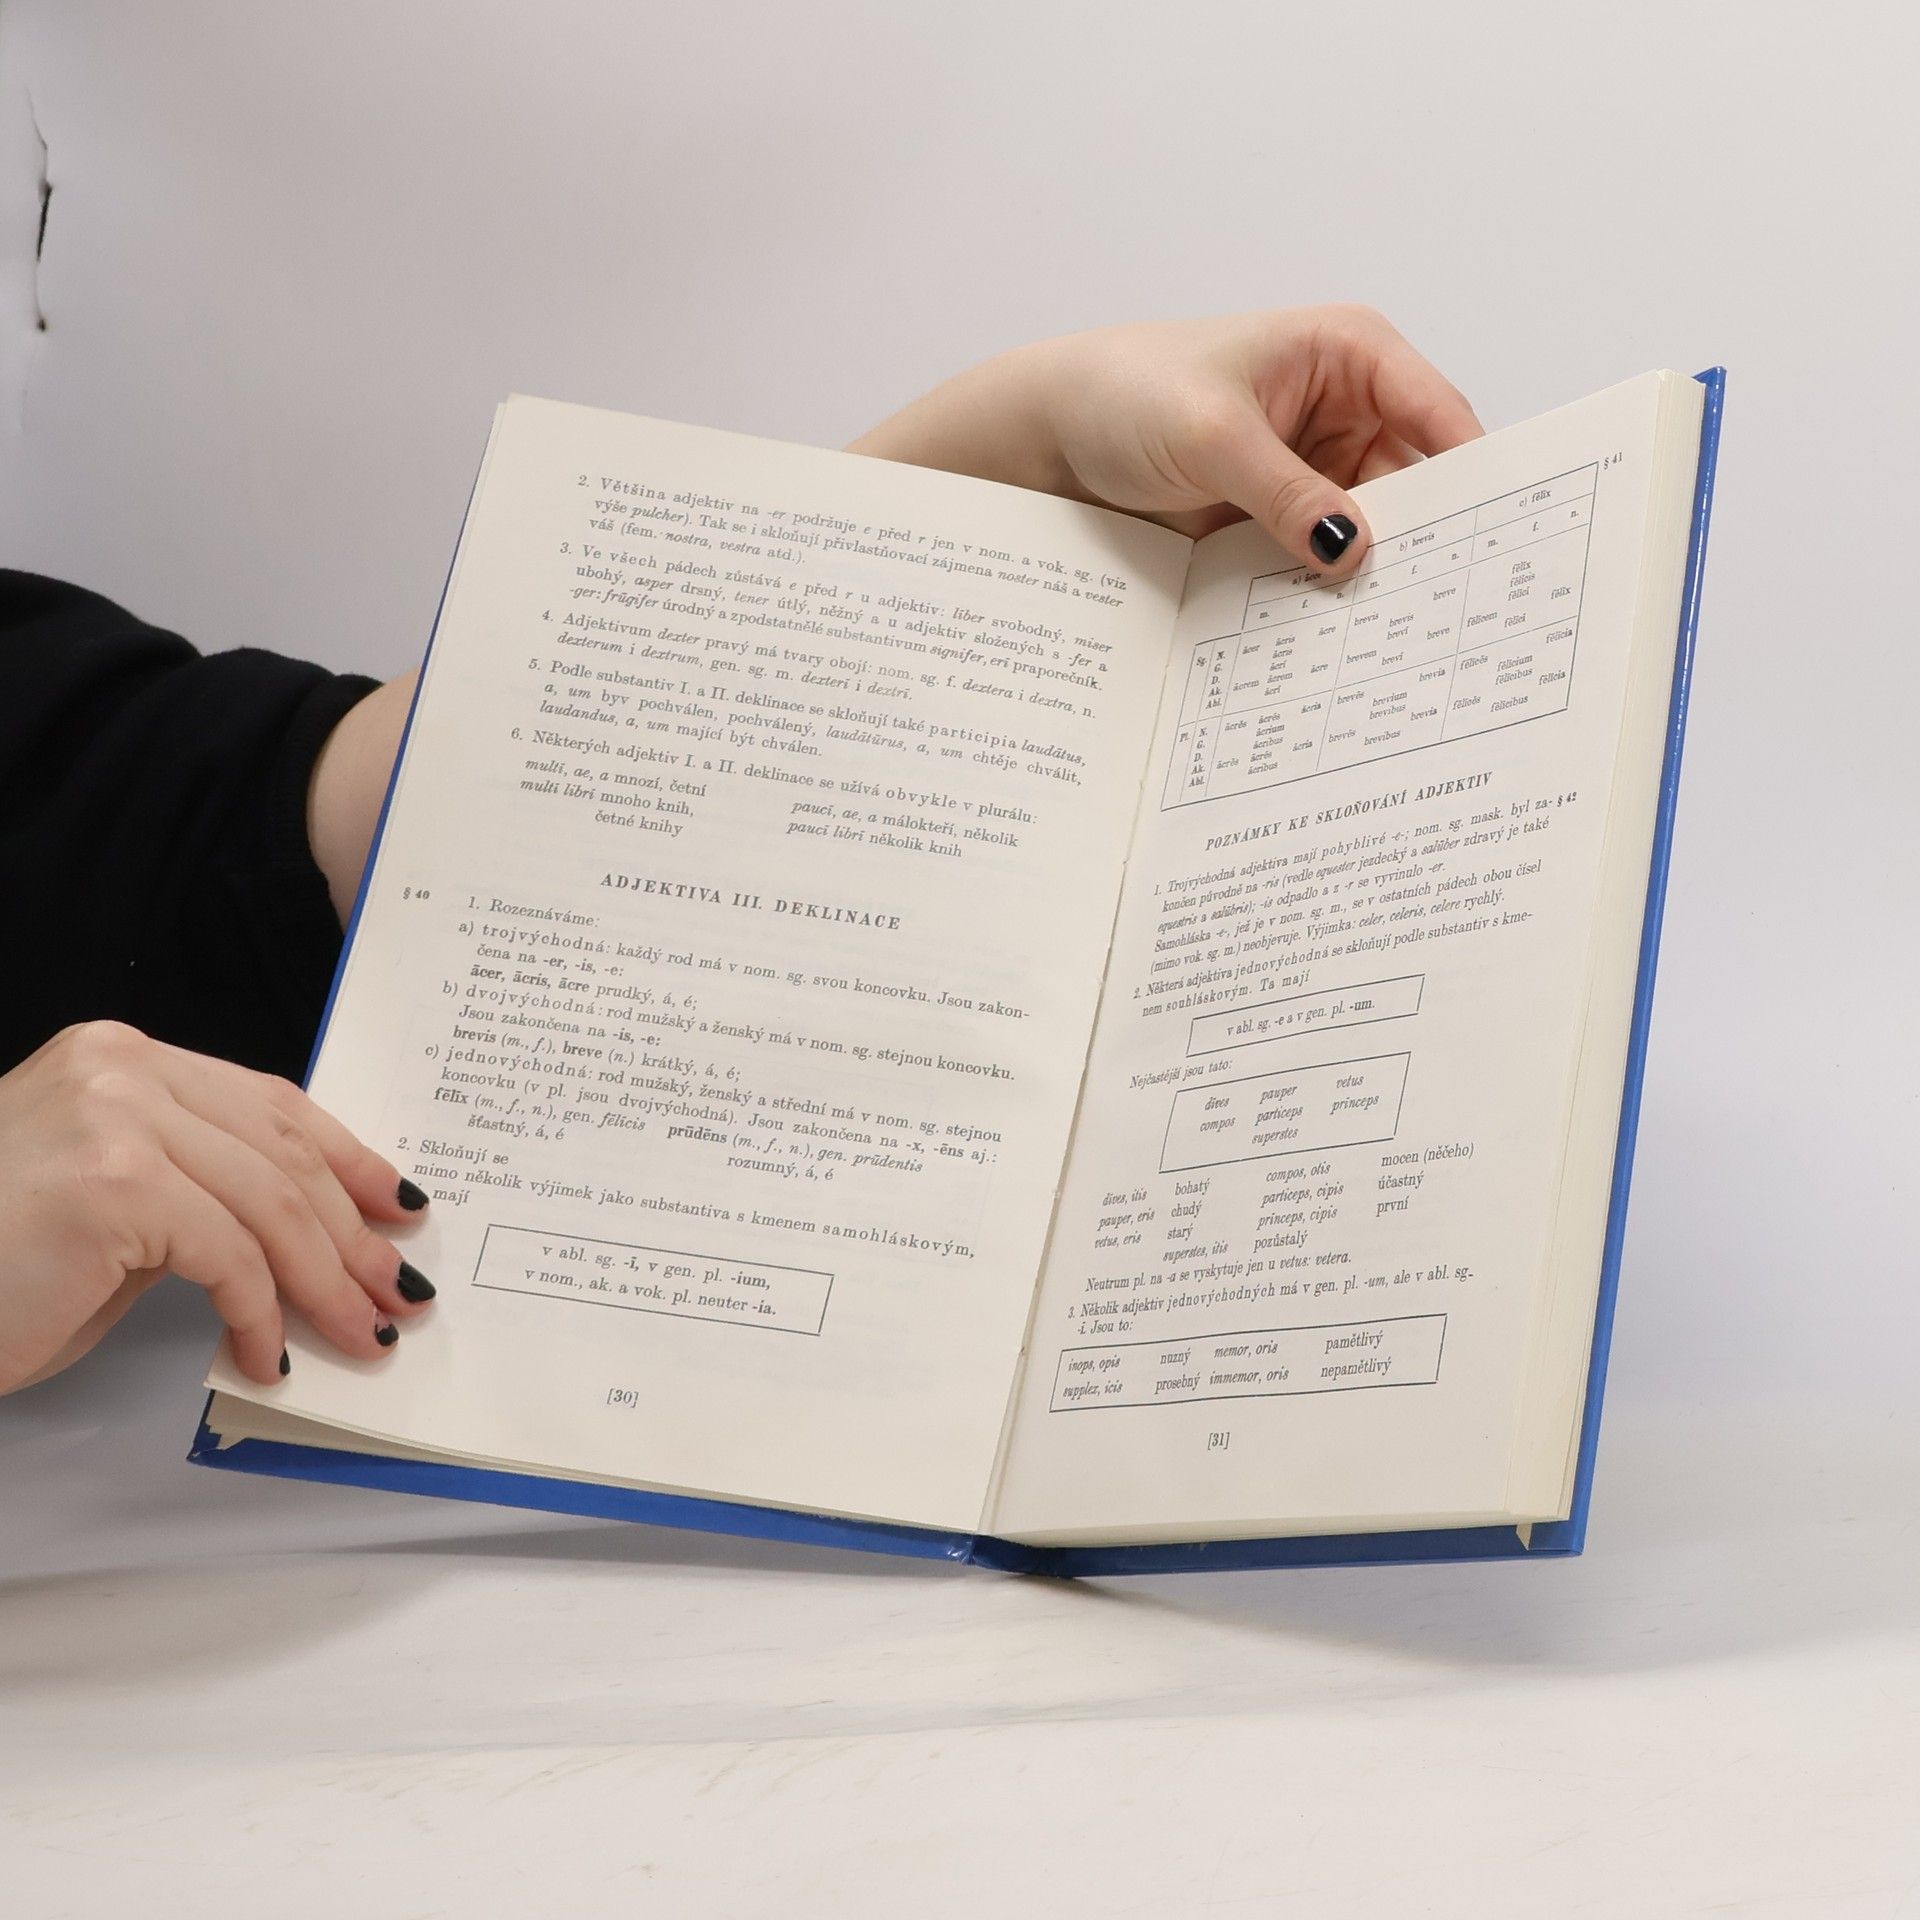 2. Většina adjektiv na -er podržuje e před r jen v nom. a vok. sg. (viz
výše pulcher). Tak se i skloňují přivlastňovací zájmena noster náš a vester
váš (fem. nostra, vestra atd.).
3. Ve všech pádech zůstává e před r u adjektiv: līber svobodný, miser
ubohý, asper drsný, tener útlý, něžný a u adjektiv složených s -fer a
-ger: frūgifer úrodný a zpodstatnělé substantivum signifer, erī praporečník.
4. Adjektivum dexter pravý má tvary obojí: nom. sg. f. dextera i dextra, n.
dexterum i dextrum, gen. sg. m. dexterī i dextrī.
5. Podle substantiv I. a II. deklinace se skloňují také participia laudātus,
a, um byv pochválen, pochválený, laudātūrus, a, um chtěje chválit,
laudandus, a, um mající být chválen.
6. Některých adjektiv I. a II. deklinace se užívá obvykle v plurálu:
multī, ae, a mnozí, četní paucī, ae, a málokteří, několik
multī librī mnoho knih, paucī librī několik knih
četné knihy
ADJEKTIVA III. DEKLINACE
§ 40
1. Rozeznáváme:
a) trojvýchodná: každý rod má v nom. sg. svou koncovku. Jsou zakon-
čena na -er, -is, -e:
ācer, ācris, ācre prudký, á, é;
b) dvojvýchodná: rod mužský a ženský má v nom. sg. stejnou koncovku.
Jsou zakončena na -is, -e:
brevis (m., f.), breve (n.) krátký, á, é;
c) jednovýchodná: rod mužský, ženský a střední má v nom. sg. stejnou
koncovku (v pl. jsou dvojvýchodná). Jsou zakončena na -x, -ēns aj.:
fēlīx (m., f., n.), gen. fēlīcis prūdēns (m., f., n.), gen. prūdentis
šťastný, á, é rozumný, á, é
2. Skloňují se
mimo několik výjimek jako substantiva s kmenem samohláskovým,
mají
v abl. sg. -ī, v gen. pl. -ium,
v nom., ak. a vok. pl. neuter -ia.
[30]
§ 41
a) b) brevis c) fēlīx
m. f. n. m. f. n. m. f. n.
Sg. N. ācer ācris ācre brevis brevis breve fēlīx
G. ācris brevis fēlīcis
D. ācrī brevī fēlīcī
Ak. ācrem ācrem ācre brevem breve fēlīcem fēlīx
Abl. ācrī brevī fēlīcī
Pl. N. ācrēs ācrēs ācria brevēs brevia fēlīcēs fēlīcia
G. ācrium brevium fēlīcium
D. ācribus brevibus fēlīcibus
Ak. ācrēs ācrēs ācria brevēs brevia fēlīcēs fēlīcia
Abl. ācribus brevibus fēlīcibus
POZNÁMKY KE SKLOŇOVÁNÍ ADJEKTIV
1. Trojvýchodná adjektiva mají pohyblivé -e-; nom. sg. mask. byl za- § 42
končen původně na -ris (vedle equester jezdecký a salūber zdravý je také
equestris a salūbris); -is odpadlo a z -r se vyvinulo -er.
Samohláska -e-, jež je v nom. sg. m., se v ostatních pádech obou čísel
(mimo vok. sg. m.) neobjevuje. Výjimka: celer, celeris, celere rychlý.
2. Některá adjektiva jednovýchodná se skloňují podle substantiv s kme-
nem souhláskovým. Ta mají
v abl. sg. -e a v gen. pl. -um.
Nejčastější jsou tato:
dīves pauper vetus
compos particeps prīnceps
superstes
dīves, itis bohatý compos, otis mocen (něčeho)
pauper, eris chudý particeps, cipis účastný
vetus, eris starý prīnceps, cipis první
superstes, itis pozůstalý
Neutrum pl. na -a se vyskytuje jen u vetus: vetera.
3. Několik adjektiv jednovýchodných má v gen. pl. -um, ale v abl. sg.
-ī. Jsou to:
inops, opis nuzný memor, oris pamětlivý
supplex, icis prosebný immemor, oris nepamětlivý
[31]